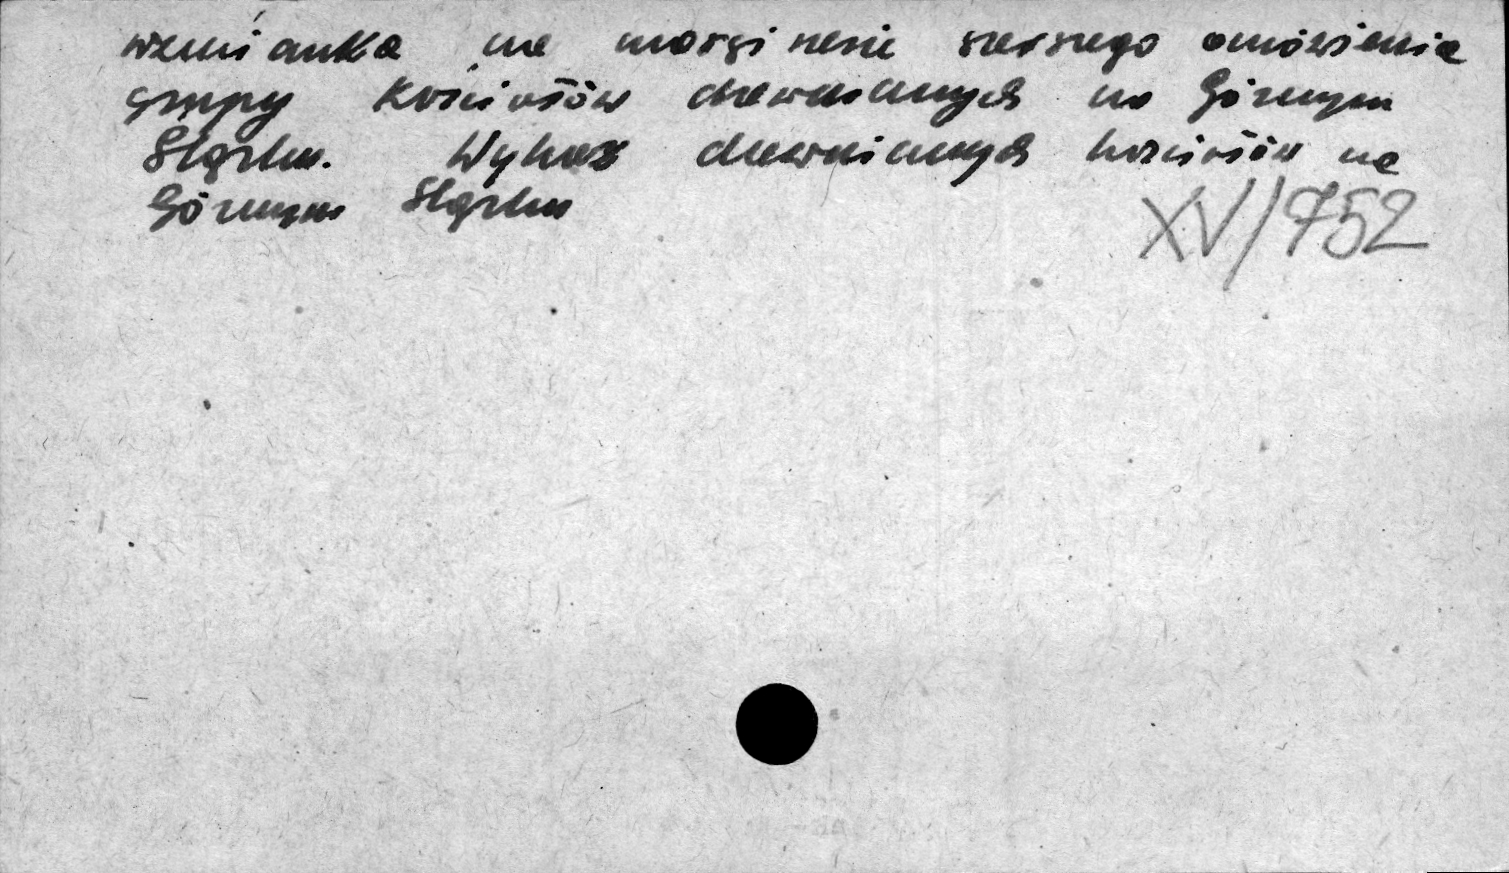 wzmianka na marginesie szerszego omówienia
grupy kościołów drewnianych na Górnym
Śląsku. Wykaz drewnianych kościołów na
Górnym Śląsku
XV/752